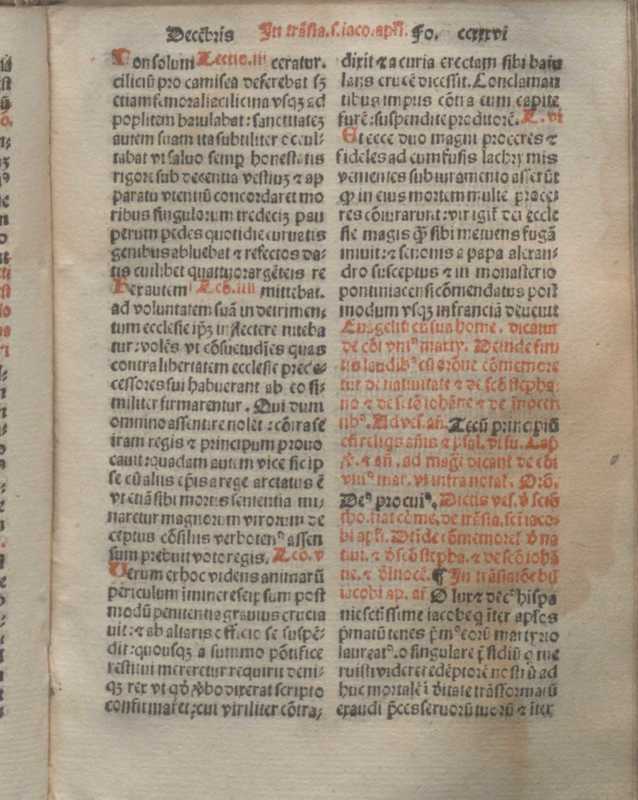 Decẽbris In trãsla. s. iaco. apłi. Fo. ccxxxvi
Non solum Lectio. iii ceratur.
ciliciũ pro camisea deferebat sꝫ
etiam femoralia cilicina vsqꝫ ad
poplitem baiulabat: sanctitatẽ
autem suam ita subtiliter occul⸗
tabat vt saluo semp honestatis
rigore sub decentia vestiuꝫ & ap
paratu vtentiũ concordaret mo
ribus singulorum tredeciꝫ pau
perum pedes quotidie curuatis
genibus abluebat & refectos da⸗
tis cuilibet quattuor argẽteis re
Rex autem Lec. iiii mittebat.
ad voluntatem suã in detrimen⸗
tum ecclesie ip̃ꝫ inflectere niteba
tur: volẽs vt cõsuetudĩes quas
contra libertatem ecclesie prede⸗
cessores sui habuerant ab eo si⸗
militer firmarentur. Qui dum
omnino assentire nolet: cõtra se
iram regis & principum prouo
cauit: quadam autem vice sic ip
se cũ aliis ep̃is a rege arctatus ẽ
vt etiã sibi mortis sententia mi⸗
naretur magnorum virorum de
ceptus cõsiliis verbotenꝰ assen
sum prebuit voto regis. Lec. v
Verum ex hoc videns animarũ
periculum iminere seipsum post
modũ penitentia grauius crucia
uit: & ab altaris officio se suspẽ⸗
dit: quousqꝫ a summo põtifice
restitui mereretur requirit deni⸗
qꝫ rex vt qd̃ v̾bo dixerat scripto
confirmaret: cui viriliter cõtra⸗
dixit & a curia erectam sibi baiu
lans crucẽ dicessit. Conclaman
tibus impiis cõtra eum capite
furẽ: suspendite proditorẽ. L. vi
Et ecce duo magni proceres &
fideles ad eum fusis lachrymis
venientes sub iuramento asserũt
ꝙ in eius mortem multe proce⸗
res cõiurarunt: vir igit̃ dei eccle
sie magis q̃ꝫ sibi metuens fugã
iniuit: & senonis a papa alexan⸗
dro susceptus & in monasterio
pontiniacensi cõmendatus post
modum vsqꝫ in franciã deuenit
Euãgeliũ cũ sua home. dicatur
de cõi vniꝰ marty. Deinde fini
tis laudibꝰ cũ orõne cõmemore
tur de natiuitate & de scõ stepha
no & de scõ iohãne & de ĩnocen
tibꝰ. Ad vesꝑ. añ. Tecũ principiũ
cũ reliqs añis & psal. vt su. Cap̃
℣. & añ. ad mag̃. dicant̃ de cõi
vniꝰ mar. vt infra notat̃. Orõ.
Deꝰ pro cuiꝰ. Dictis vesꝑ. d̾ scõ
tho. fiat cõme. de trãsla. scĩ iaco⸗
bi apłi. Deĩde cõmemoret̃ d̾ na
tiui. & d̾ scõ stepha. & de scõ iohã
ne. & d̾ ĩnocẽ. ¶ In trãslatiõe bũ
iacobi ap. añ O lux & decꝰ hispa
nie sctĩssime iacobe q̃ ĩter aplos
p̃matũ tenes p̃mꝰ eorũ martyrio
laureatꝰ. o singulare p̃sidiũ q̃ me
ruisti videre redẽptorẽ nostrũ ad
huc mortalẽ ĩ d̾itate trãsformatũ
exaudi p̃ces seruorũ tuorũ & ĩter